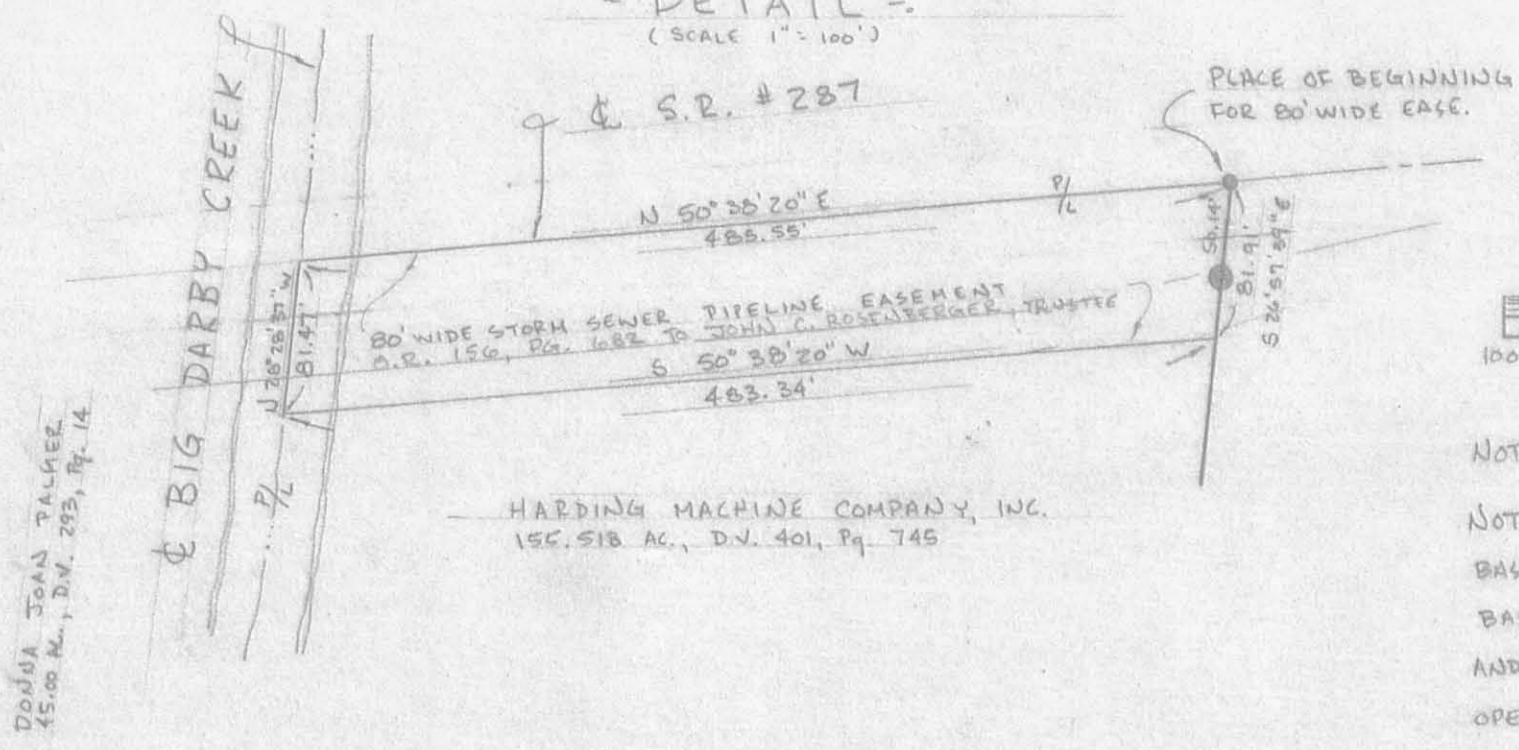 - DETAIL -
( SCALE 1" = 100')
℄ S.R. # 287
PLACE OF BEGINNING
FOR 80' WIDE EASE.
℄ BIG DARBY CREEK
N 50° 38' 20" E
485.55'
P/L
81.91'
81.47'
80' WIDE STORM SEWER PIPELINE EASEMENT
O.R. 156, PG. 682 TO JOHN C. ROSENBERGER, TRUSTEE
S 50° 38' 20" W
483.34'
P/L
HARDING MACHINE COMPANY, INC.
155.518 AC., D.V. 401, Pg. 745
DONNA JOAN PALMER
45.00 AC., D.V. 293, Pg. 14
100
NOT
NOT
BAS
BA
AND
OPE